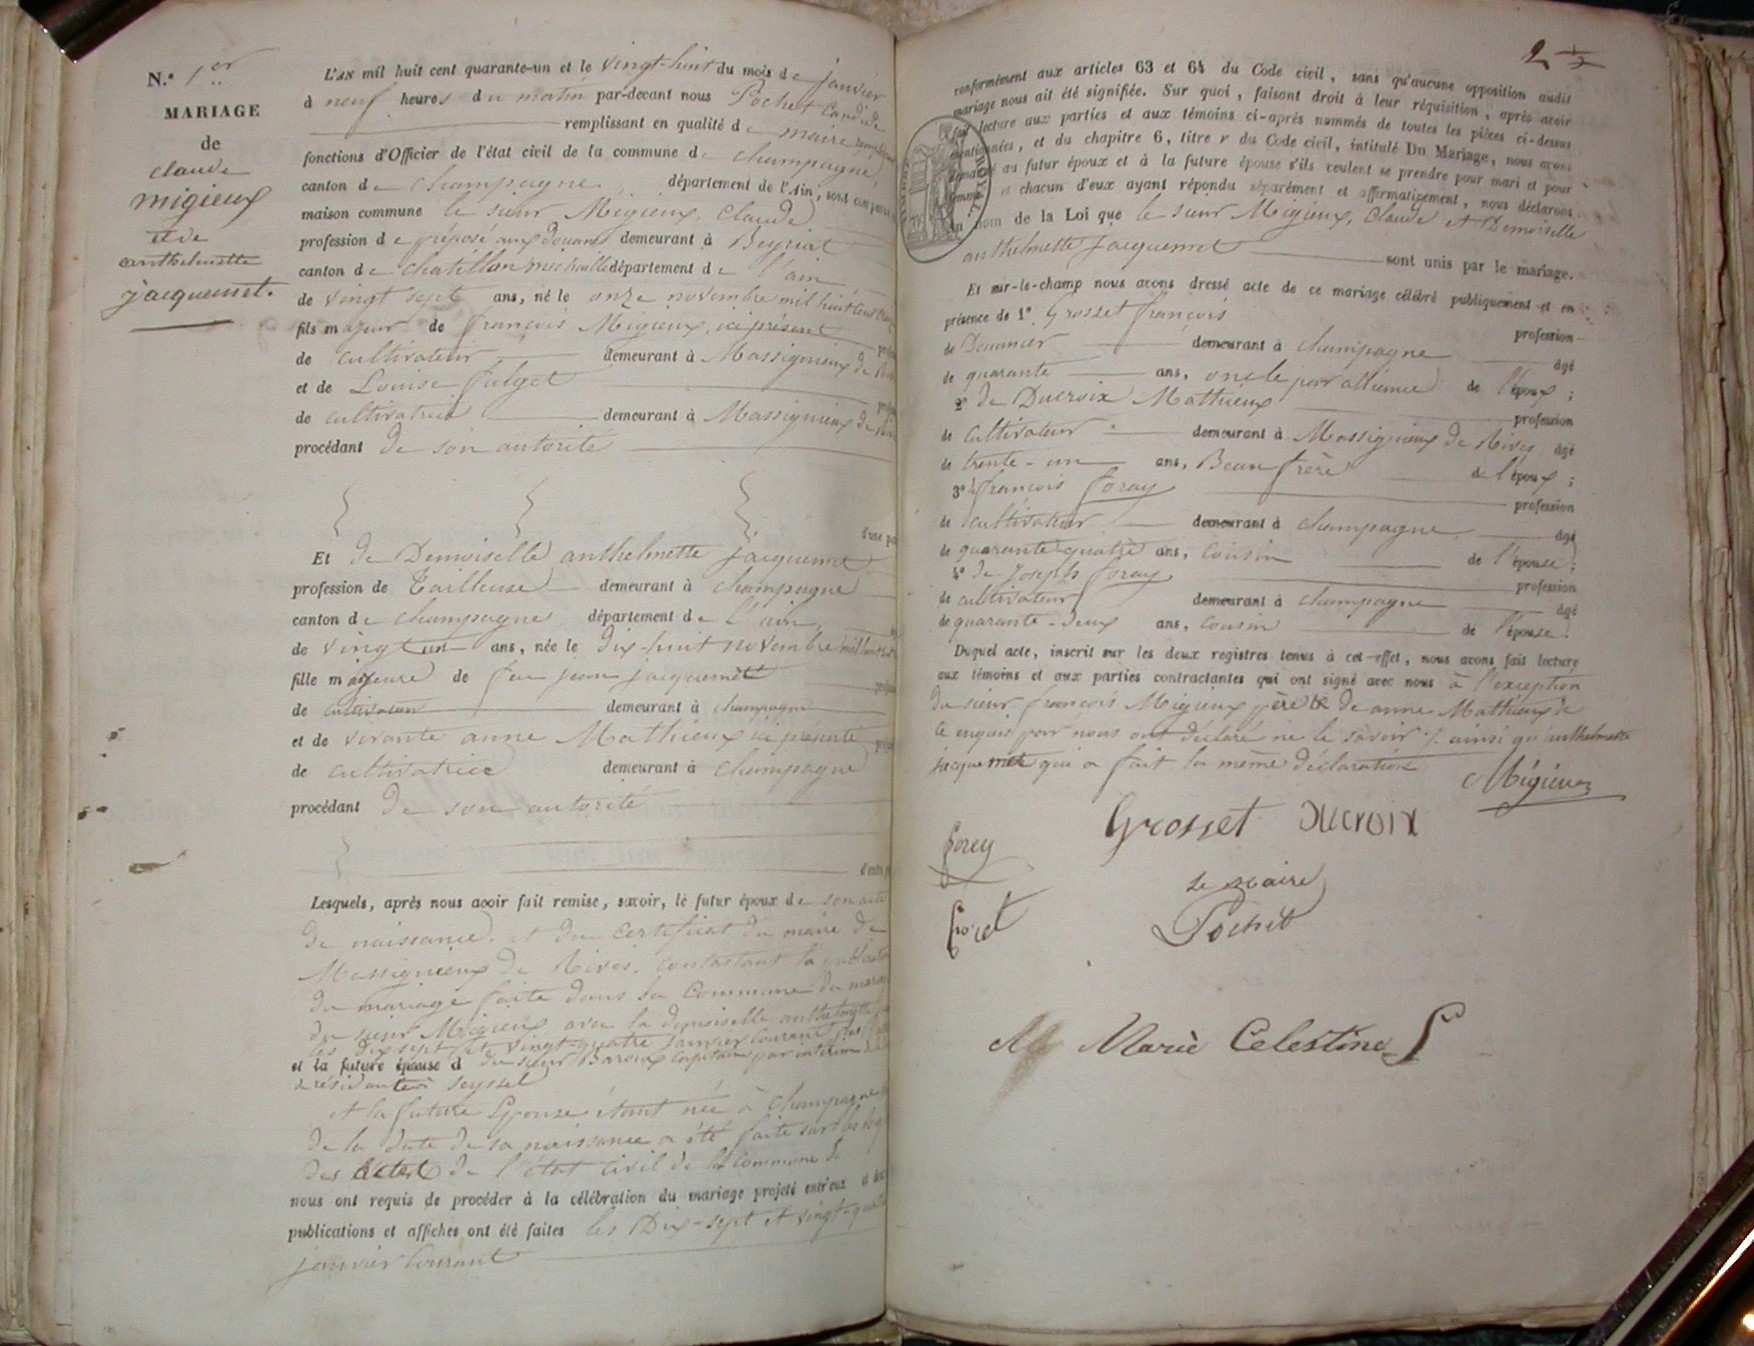 N.º 1er
MARIAGE
de
claude
migieux
et de
anthelmette
jacquemet.
L'AN mil huit cent quarante-un et le vingt-huit du mois de janvier
à neuf heures du matin par-devant nous Pochet Candide
remplissant en qualité de maire
fonctions d'Officier de l'état civil de la commune de champagne,
canton de champagne département de l'Ain, sont
maison commune le sieur Migieux, Claude
profession de préposé aux Douanes demeurant à Beyriat
canton de chatillon michaille département de l'ain
de vingt sept ans, né le onze novembre mil huit cent
fils majeur de françois Migieux, ici présent
de cultivateur demeurant à Massignieux de
et de Louise fulget
de cultivatrice demeurant à Massignieux de
procédant de son autorité
d'une
Et de Demoiselle anthelmette jacquemet
profession de Tailleuse demeurant à champagne
canton de champagne département de l'ain
de vingt un ans, née le dix-huit novembre mil huit
fille majeure de feu jean jacquemet
de cultivateur demeurant à champagne
et de vivante anne Mathieux ici présente
de cultivatrice demeurant à champagne
procédant de son autorité
Lesquels, après nous avoir fait remise, savoir, le futur époux de son acte
de naissance, et du certificat du maire de
Massignieux de Rives, contastant la
du mariage faite dans sa commune du
du sieur Migieux avec la demoiselle anthelmette
les dix sept et vingt quatre janvier courant
et la future épouse d du sieur Baroux Capitaine par intérim
de résidence à Seyssel
et la future Epouse étant née à champagne
de la date de sa naissance a été faite sur les
des actes de l'état civil de la commune de
nous ont requis de procéder à la célébration du mariage projeté entr'eux
publications et affiches ont été faites les Dix-sept et vingt-quatre
janvier courant
2
conformément aux articles 63 et 64 du Code civil, sans qu'aucune opposition audit
mariage nous ait été signifiée. Sur quoi, faisant droit à leur réquisition, après avoir
fait lecture aux parties et aux témoins ci-après nommés de toutes les pièces ci-dessus
mentionnées, et du chapitre 6, titre v du Code civil, intitulé Du Mariage, nous avons
demandé au futur époux et à la future épouse s'ils veulent se prendre pour mari et pour
femme, et chacun d'eux ayant répondu séparément et affirmativement, nous déclarons
au nom de la Loi que le sieur Migieux, Claude et Demoiselle
anthelmette jacquemet sont unis par le mariage.
Et sur-le-champ nous avons dressé acte de ce mariage célébré publiquement et en
présence de 1º Grosset françois profession
de Douanier demeurant à champagne âgé
de quarante ans, oncle par alliance de l'époux;
2º de Ducroix Mathieux profession
de cultivateur demeurant à Massignieux de Rives âgé
de trente-un ans, Beau frère de l'époux;
3º françois foray profession
de cultivateur demeurant à champagne âgé
de quarante quatre ans, cousin de l'épouse;
4º de Joseph foray profession
de cultivateur demeurant à champagne âgé
de quarante-deux ans, cousin de l'épouse.
Duquel acte, inscrit sur les deux registres tenus à cet effet, nous avons fait lecture
aux témoins et aux parties contractantes qui ont signé avec nous à l'exception
du sieur françois Migieux père et de anne Mathieux
ce enquis par nous ont déclaré ne le savoir ainsi qu'anthelmette
jacquemet qui a fait la même déclaration
Migieux
Grosset Ducroix
forey
le maire
Pochet
Marie Celestine